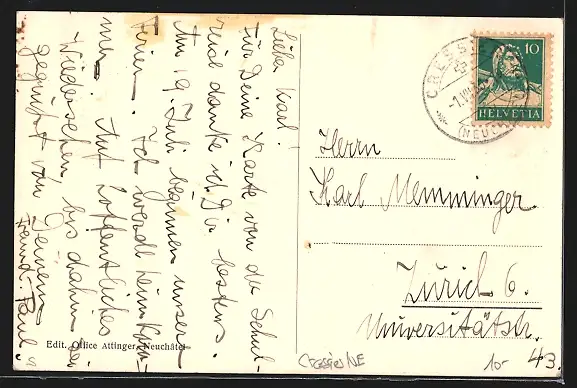 Lieber Karl!
Für Deine Karte von der Schul-
reise danke ich Dir bestens.
Am 19. Juli beginnen unsere
Ferien. Ich werde heim kom-
men. Auf hoffentliches
Wiedersehen, bis dahin sei
gegrüsst von Deinem
Freund Paul.
Edit. Office Attinger, Neuchâtel
CRESSIER
(NEUCH
10
HELVETIA
Herrn
Karl Memminger
Zürich 6.
Universitätstr.
43.
Cressier/NE
10-